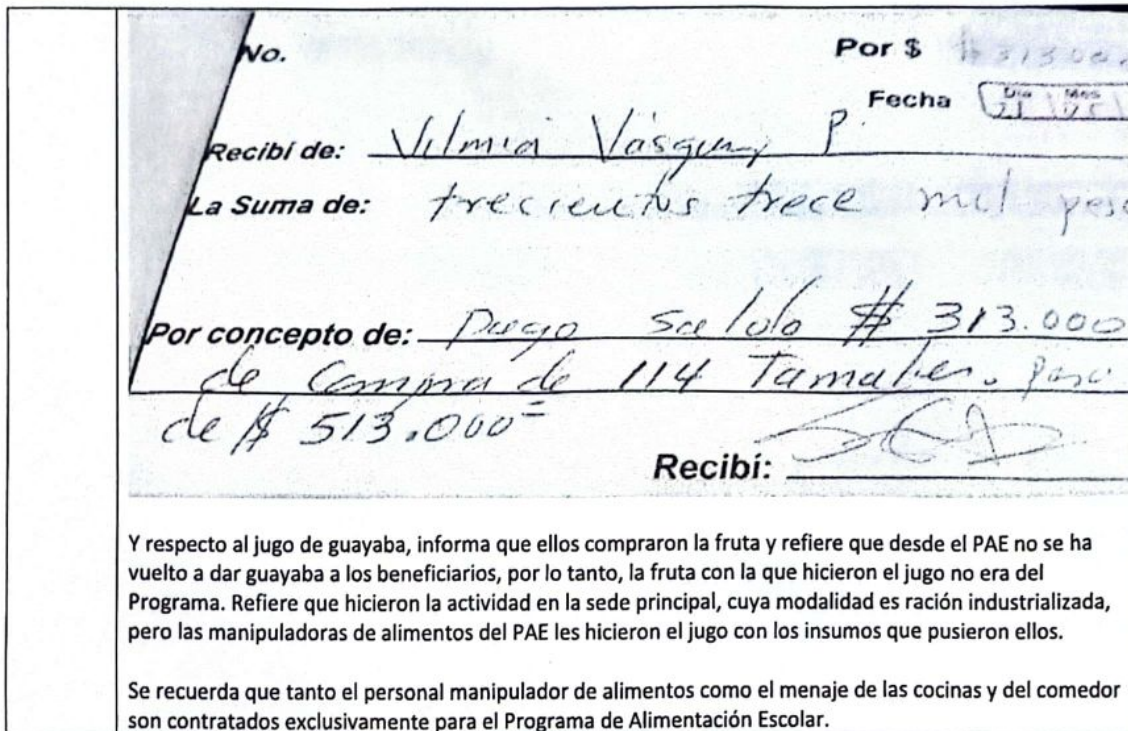 No.
Por $ $ 313.00
Fecha Día Mes
Recibí de: Vilmia Vasquez P.
La Suma de: trecientos trece mil peso
Por concepto de: Pago Saldo $ 313.000
de Compra de 114 Tamales.
de $ 513.000=
Recibí:
Y respecto al jugo de guayaba, informa que ellos compraron la fruta y refiere que desde el PAE no se ha
vuelto a dar guayaba a los beneficiarios, por lo tanto, la fruta con la que hicieron el jugo no era del
Programa. Refiere que hicieron la actividad en la sede principal, cuya modalidad es ración industrializada,
pero las manipuladoras de alimentos del PAE les hicieron el jugo con los insumos que pusieron ellos.
Se recuerda que tanto el personal manipulador de alimentos como el menaje de las cocinas y del comedor
son contratados exclusivamente para el Programa de Alimentación Escolar.